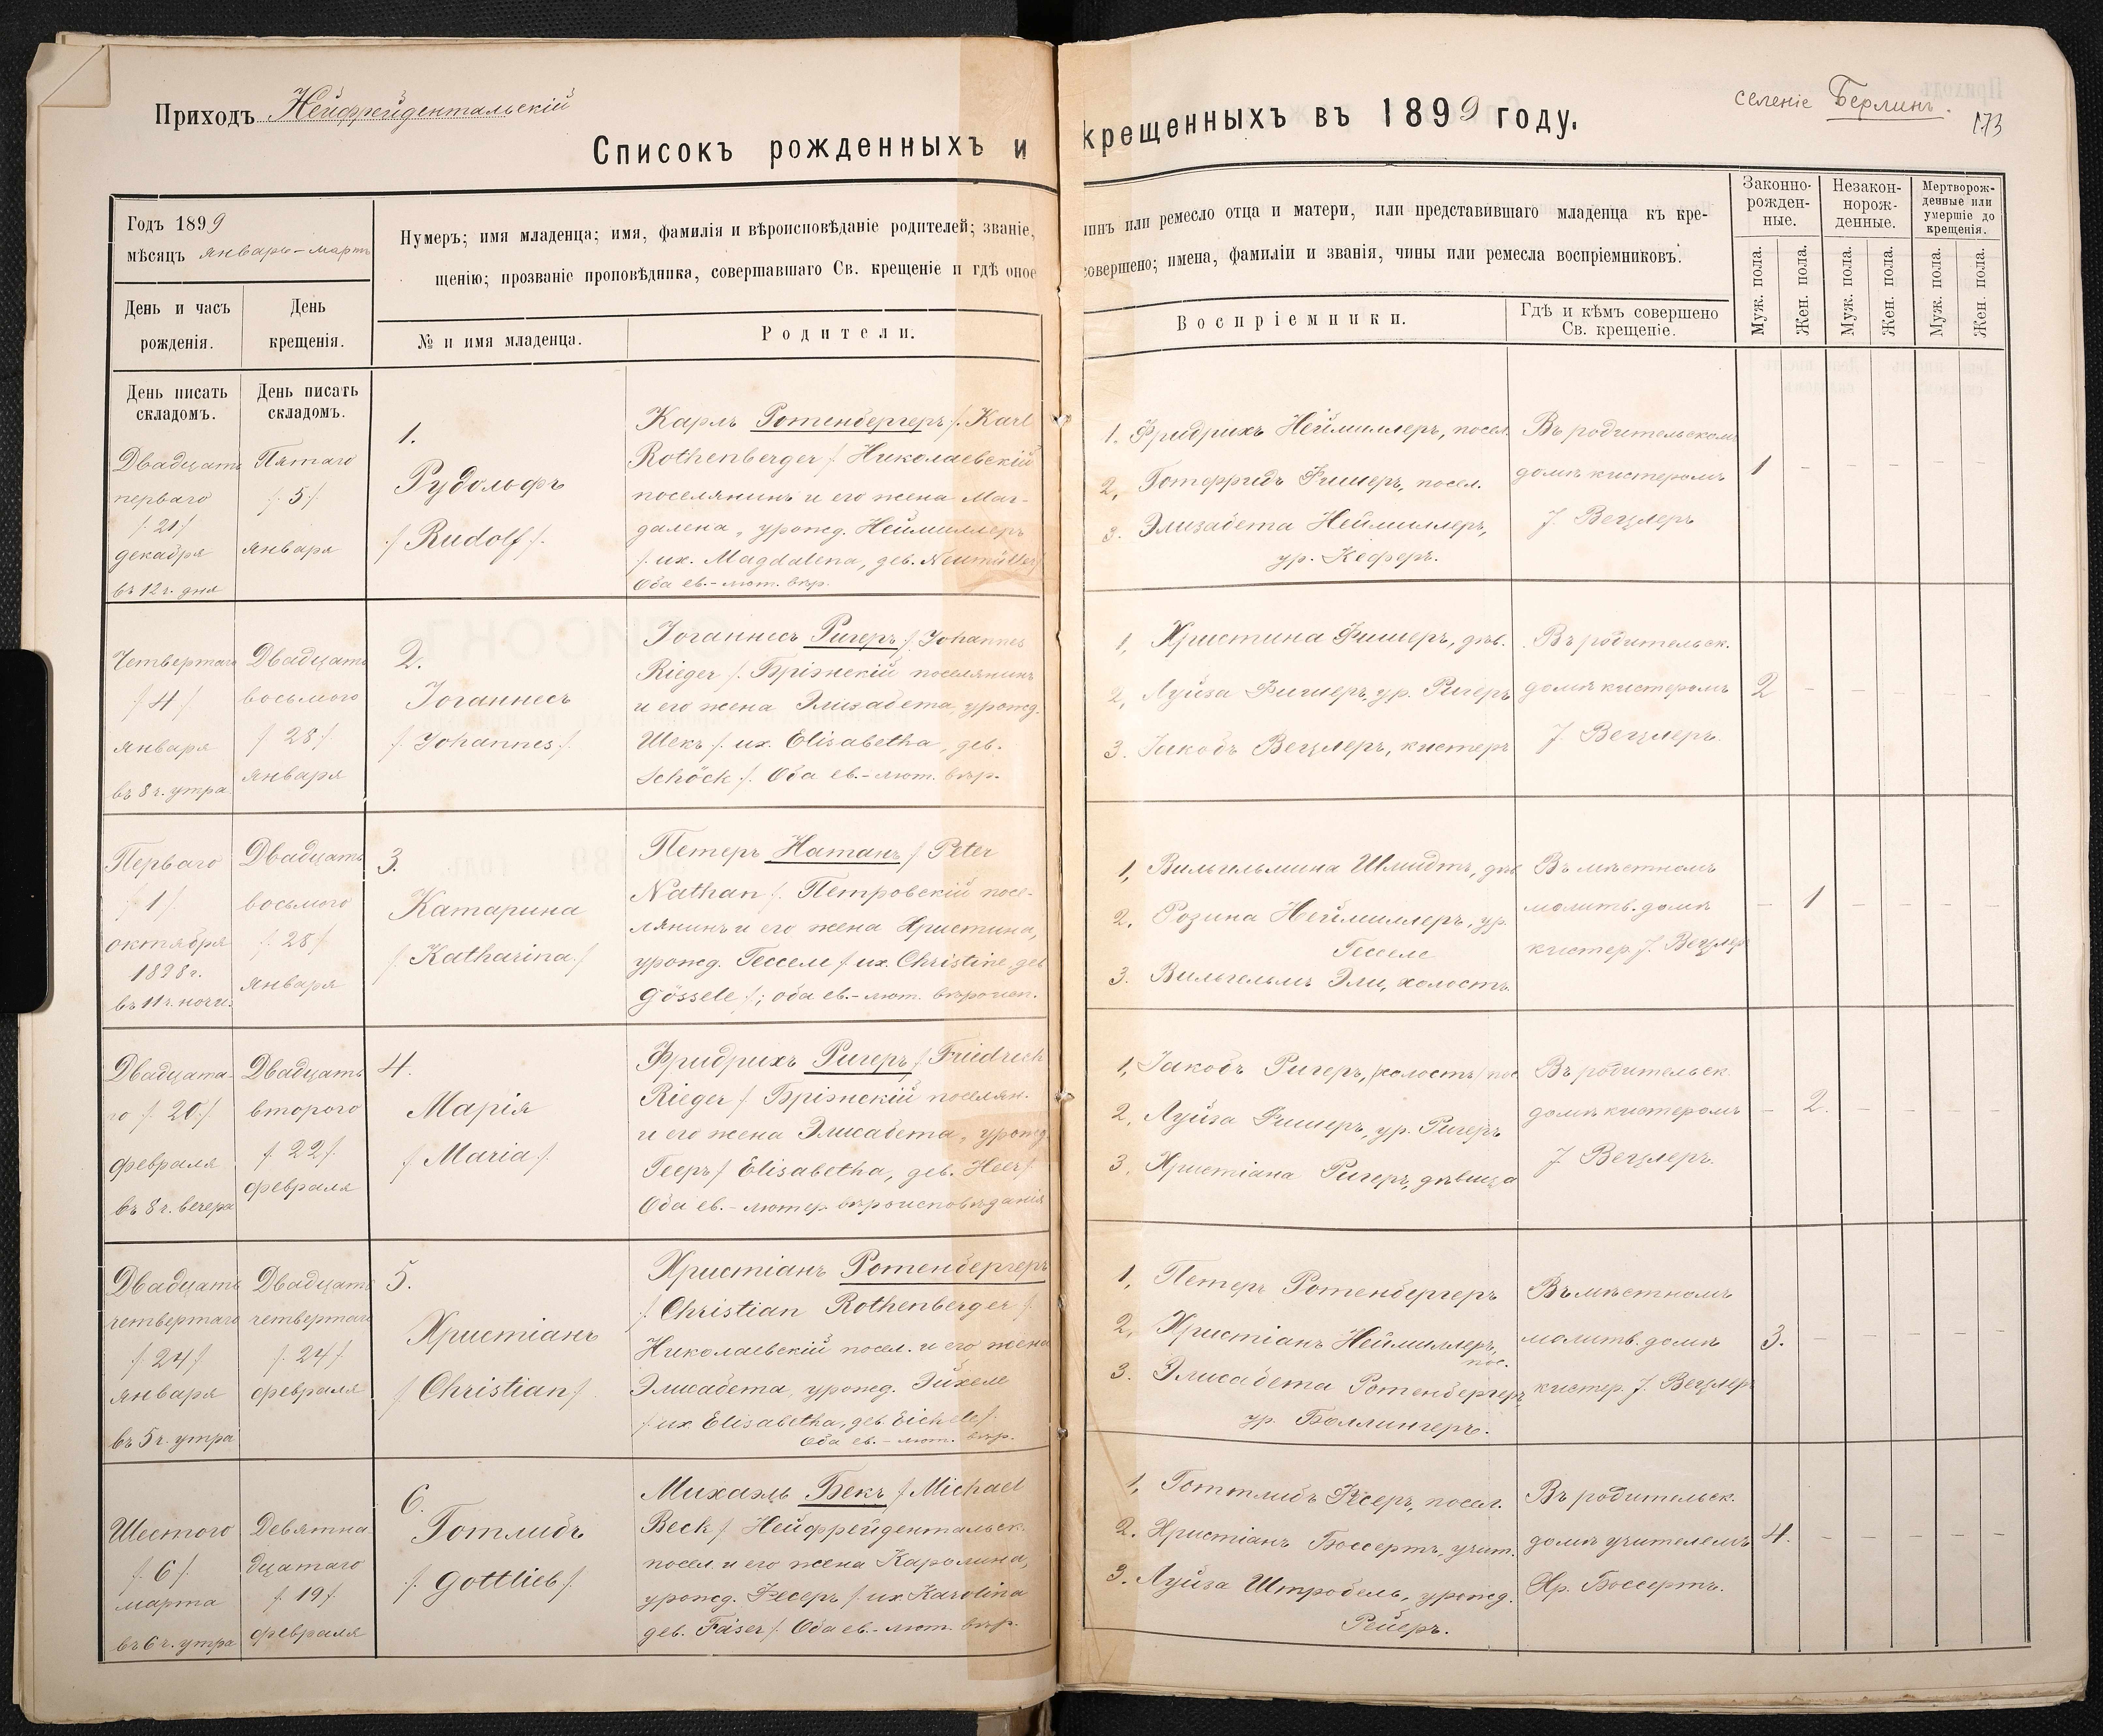 Приходъ Нейфрейдентальскій
селеніе Берлинъ.
173
Списокъ рожденныхъ и крещенныхъ въ 1899 году.
Годъ 1899
мѣсяцъ январь-мартъ
Нумеръ; имя младенца; имя, фамилія и вѣроисповѣданіе родителей; званіе,
чинъ или ремесло отца и матери, или представившаго младенца къ кре-
щенію; прозваніе проповѣдника, совершавшаго Св. крещеніе и гдѣ оное
совершено; имена, фамиліи и званія, чины или ремесла воспріемниковъ.
Законно-
рожден-
ные.
Незакон-
норож-
денные.
Мертворож-
денные или
умершіе до
крещенія.
День и часъ
рожденія.
День
крещенія.
№ и имя младенца.
Родители.
Воспріемники.
Гдѣ и кѣмъ совершено
Св. крещеніе.
Муж. пола.
Жен. пола.
Муж. пола.
Жен. пола.
Муж. пола.
Жен. пола.
День писать
складомъ.
День писать
складомъ.
Двадцать
перваго
/. 21 /.
декабря
въ 12 ч. дня
Пятаго
/. 5 /.
января
1.
Рудольфъ
/. Rudolf /.
Карлъ Ротенбергеръ /. Karl
Rothenberger /. Николаевскій
поселянинъ и его жена Маг-
далена, урожд. Неймиллеръ
/. их. Magdalena, geb. Neumüller /.
Оба ев.-лют. вѣр.
1. Фридрихъ Неймиллеръ, посел.
2, Готфридъ Фишеръ, посел.
3. Элизабета Неймиллеръ,
ур. Кеферъ.
Въ родительскомъ
домѣ кистеромъ
J. Вецлеръ
1 - - - - -
Четвертаго
/. 4 /.
января
въ 8 ч. утра
Двадцать
восьмого
/. 28 /.
января
2.
Іоганнесъ
/. Johannes /.
Іоганнесъ Ригеръ /. Johannes
Rieger /. Бріэнскій поселянинъ
и его жена Элизабета, урожд.
Шекъ /. их. Elisabetha, geb.
Schöck /. Оба ев.-лют. вѣр.
1, Христина Фишеръ, дѣв.
2, Луйза Фишеръ, ур. Ригеръ
3. Іакобъ Вецлеръ, кистеръ
Въ родительск.
домѣ кистеромъ
J. Вецлеръ.
2 - - - - -
Перваго
/. 1 /.
октября
1898 г.
въ 11 ч. ночи.
Двадцать
восьмого
/. 28 /.
января
3.
Катарина
/. Katharina /.
Петеръ Натанъ /. Peter
Nathan /. Петровскій посе-
лянинъ и его жена Христина,
урожд. Гесселе /. их. Christine geb
Gössele /.; оба ев.-лют. вѣроисп.
1, Вильгельмина Шмидтъ, дѣв
2. Розина Неймиллеръ, ур.
Гесселе
3. Вильгельмъ Эли, холостъ.
Въ мѣстномъ
молитв. домѣ
кистер. J. Вецлеръ
- 1 - - - -
Двадцата-
го /. 20 /.
февраля
въ 8 ч. вечера
Двадцать
второго
/. 22 /.
февраля
4.
Марія
/. Maria /.
Фридрихъ Ригеръ /. Friedrich
Rieger /. Бріэнскій поселян.
и его жена Элисабета, урожд.
Гееръ /. Elisabetha, geb. Heer /.
Оба ев.-лютер. вѣроисповѣданія
1, Іакобъ Ригеръ, (холостъ) пос
2, Луйза Фишеръ, ур. Ригеръ
3. Христіана Ригеръ, дѣвица
Въ родительск.
домѣ кистеромъ
J. Вецлеръ.
- 2. - - - -
Двадцать
четвертаго
/. 24 /.
января
въ 5 ч. утра
Двадцать
четвертаго
/. 24 /.
февраля
5.
Христіанъ
/. Christian /.
Христіанъ Ротенбергеръ
/. Christian Rothenberger /.
Николаевскій посел. и его жена
Элисабета, урожд. Эйхеле
/. их Elisabetha, geb. Eichele /.
Оба ев.-лют. вѣр.
1, Петеръ Ротенбергеръ
2, Христіанъ Неймиллеръ,
пос.
3. Элисабета Ротенбергеръ
ур. Боллингеръ.
Въ мѣстномъ
молитв. домѣ
кистер. J. Вецлеръ
3. - - - - -
Шестого
/. 6 /.
марта
въ 6 ч. утра
Девятна
дцатаго
/. 19 /.
февраля
6.
Готлибъ
/. Gottlieb /.
Михаэль Бекъ /. Michael
Beck /. Нейфрейдентальск.
посел. и его жена Каролина,
урожд. Фесеръ /. их Karolina
geb. Fäser /. Оба ев.-лют. вѣр.
1, Готтлибъ Фесеръ, посел.
2. Христіанъ Боссертъ, учит.
3. Луйза Штробель, урожд.
Рейеръ.
Въ родительск.
домѣ учителемъ
Хр. Боссертъ.
4. - - - - -